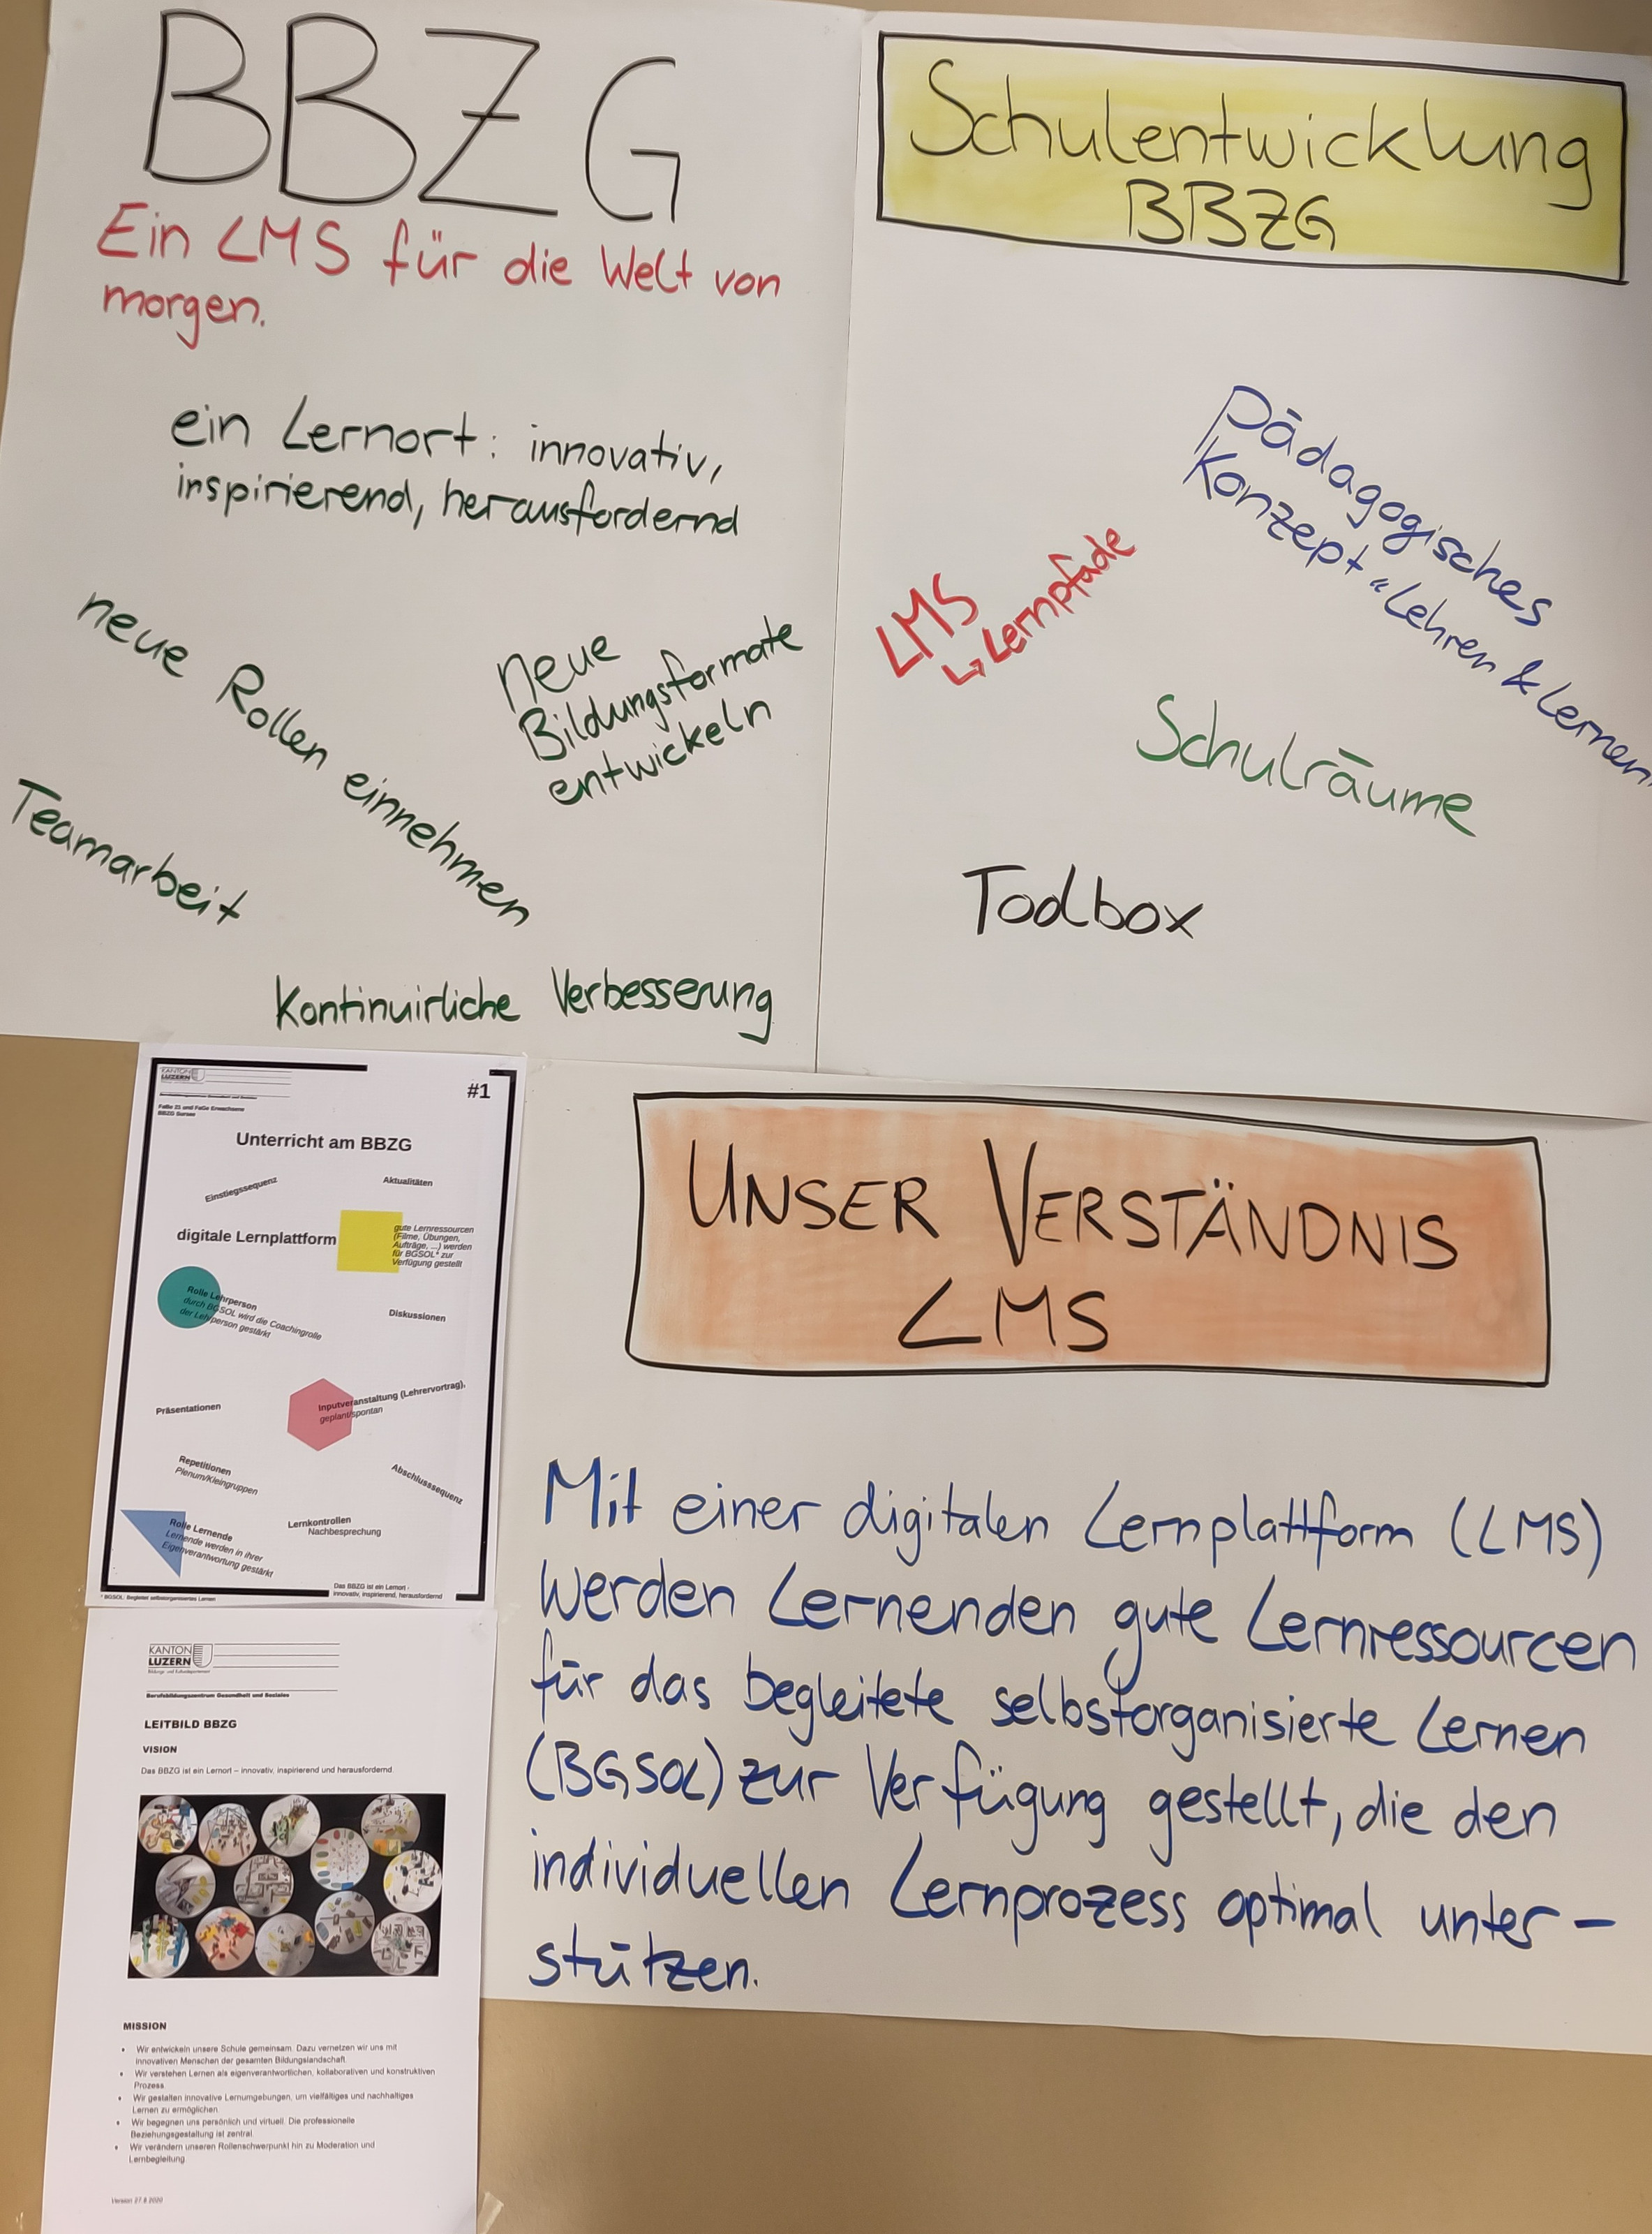 BBZG
Ein LMS für die Welt von
morgen.
ein Lernort: innovativ,
inspirierend, herausfordernd
neue Rollen einnehmen
neue
Bildungsformate
entwickeln
Teamarbeit
Kontinuirliche Verbesserung
Schulentwicklung
BBZG
Pädagogisches
Konzept "Lehren & Lernen
LMS
↳ Lernpfade
Schulräume
Toolbox
KANTON
LUZERN
#1
FaBe 21 und FaGe Erwachsene
BBZG Sursee
Unterricht am BBZG
Einstiegssequenz
Aktualitäten
digitale Lernplattform
gute Lernressourcen
(Filme, Übungen,
Aufträge, ...) werden
für BGSOL* zur
Verfügung gestellt
Rolle Lehrperson
durch BGSOL wird die Coachingrolle
der Lehrperson gestärkt
Diskussionen
Inputveranstaltung (Lehrervortrag),
geplant/spontan
Präsentationen
Repetitionen
Plenum/Kleingruppen
Abschlusssequenz
Rolle Lernende
Lernende werden in ihrer
Eigenverantwortung gestärkt
Lernkontrollen
Nachbesprechung
Das BBZG ist ein Lernort -
innovativ, inspirierend, herausfordernd
* BGSOL: Begleitet selbstorganisiertes Lernen
UNSER VERSTÄNDNIS
LMS
Mit einer digitalen Lernplattform (LMS)
werden Lernenden gute Lernressourcen
für das begleitete selbstorganisierte Lernen
(BGSOL) zur Verfügung gestellt, die den
individuellen Lernprozess optimal unter-
stützen.
KANTON
LUZERN
Bildungs- und Kulturdepartement
Berufsbildungszentrum Gesundheit und Soziales
LEITBILD BBZG
VISION
Das BBZG ist ein Lernort – innovativ, inspirierend und herausfordernd.
MISSION
• Wir entwickeln unsere Schule gemeinsam. Dazu vernetzen wir uns mit
innovativen Menschen der gesamten Bildungslandschaft.
• Wir verstehen Lernen als eigenverantwortlichen, kollaborativen und konstruktiven
Prozess.
• Wir gestalten innovative Lernumgebungen, um vielfältiges und nachhaltiges
Lernen zu ermöglichen.
• Wir begegnen uns persönlich und virtuell. Die professionelle
Beziehungsgestaltung ist zentral.
• Wir verändern unseren Rollenschwerpunkt hin zu Moderation und
Lernbegleitung.
Version 27.8.2020